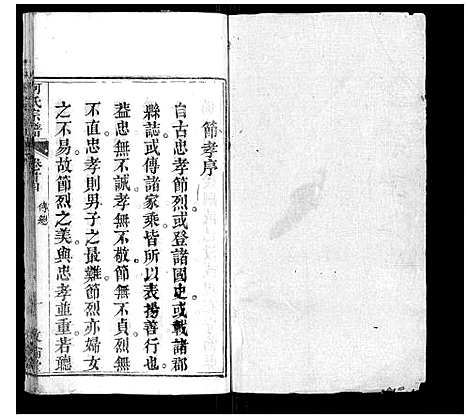 節孝序
自古忠孝節烈或登諸國史或載諸郡
縣誌或傳諸家乘皆所以表揚善行也
蓋忠無不誠孝無不敬節無不貞烈無
不直忠孝則男子之最難節烈亦婦女
之不易故節烈之美與忠孝並重若聽
何氏宗譜
卷首
傳總